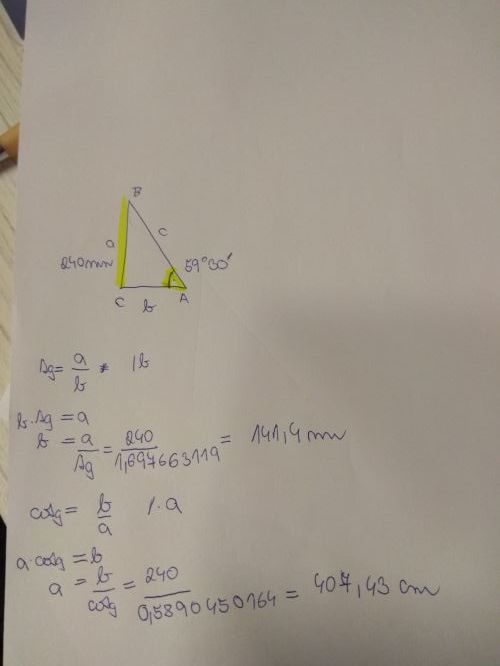 B
a
c
240mm
59°30'
C
b
A
tg = a/b * /b
b.tg = a
b = a/tg = 240/1,697663119 = 141,4 mm
cotg = b/a /.a
a.cotg = b
a = b/cotg = 240/0,5890450164 = 407,43 cm